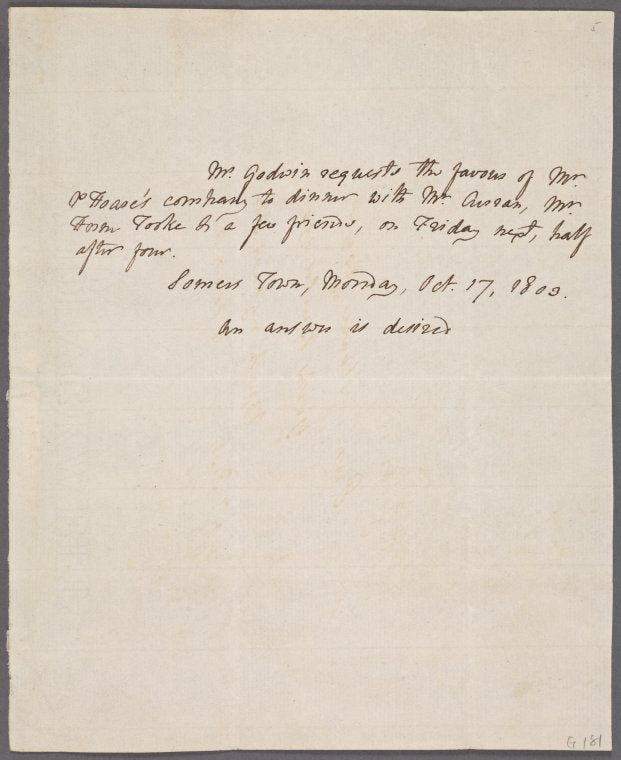 5
Mr. Godwin requests the favour of Mr
Hoare's company to dinner with Mr. Curran, Mr
Horne Tooke & a few friends, on Friday next, half
after four.
Somers Town, Monday, Oct. 17, 1803.
An answer is desired
G 181